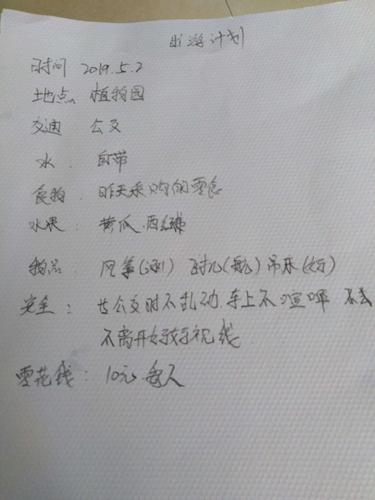 出游计划
时间 2019.5.2
地点: 植物园
交通: 公交
水: 自带
食物: 昨天采购的零食
水果: 黄瓜.西红柿
物品: 风筝( ) ( ) 吊床( )
安全: 坐公交时不乱动.车上不喧哗
不离开 视线
零花钱: 10元.每人